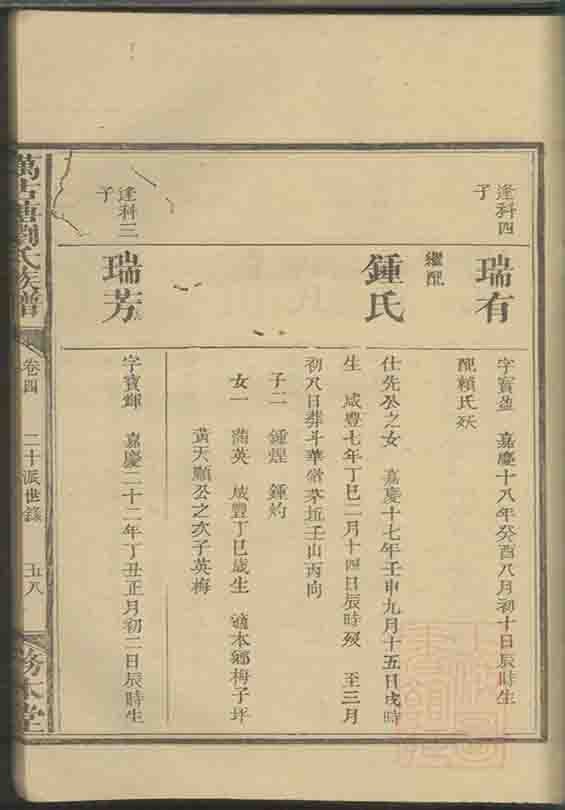 逢科四
子
瑞有
字寶盈　嘉慶十八年癸酉八月初十日辰時生
配賴氏殀
繼配
鍾氏
仕先公之女　嘉慶十七年壬申九月十五日戌時
生　咸豐七年丁巳二月十四日辰時歿　至三月
初八日葬斗華嵛茅坵壬山丙向
子二　鍾煌　鍾灼
女一　蘭英　咸豐丁巳歲生　適本鄉梅子坪
黃天顯公之次子英梅
逢科三
子
瑞芳
字寶輝　嘉慶二十二年丁丑正月初二日辰時生
萬古塘劉氏族譜
卷四
二十派世錄
五八
務本堂